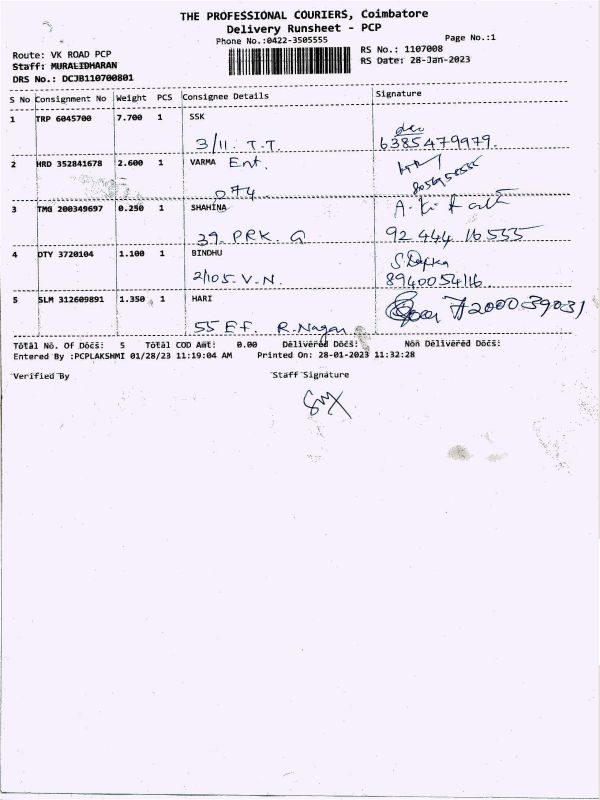 THE PROFESSIONAL COURIERS, Coimbatore
Delivery Runsheet - PCP
Phone No.:0422-3505555
Page No.:1
Route: VK ROAD PCP
RS No.: 1107008
Staff: MURALIDHARAN
RS Date: 28-Jan-2023
DRS No.: DCJB110700801
S No Consignment No Weight PCS Consignee Details Signature
1 TRP 6045700 7.700 1 SSK
3/11. T.T. 6385479979.
2 HRD 352841678 2.600 1 VARMA Ent.
074
3 TMG 200349697 0.250 1 SHAHINA
39. PRK. G 92 444 16555
4 DTY 3720104 1.100 1 BINDHU
2/105. V.N. 8940054116
5 SLM 312609891 1.350 1 HARI
55 E.f. R.Nagar 7200039031
Total No. Of Docs: 5 Total COD Amt: 0.00 Delivered Docs: Non Delivered Docs:
Entered By :PCPLAKSHMI 01/28/23 11:19:04 AM Printed On: 28-01-2023 11:32:28
Verified By Staff Signature